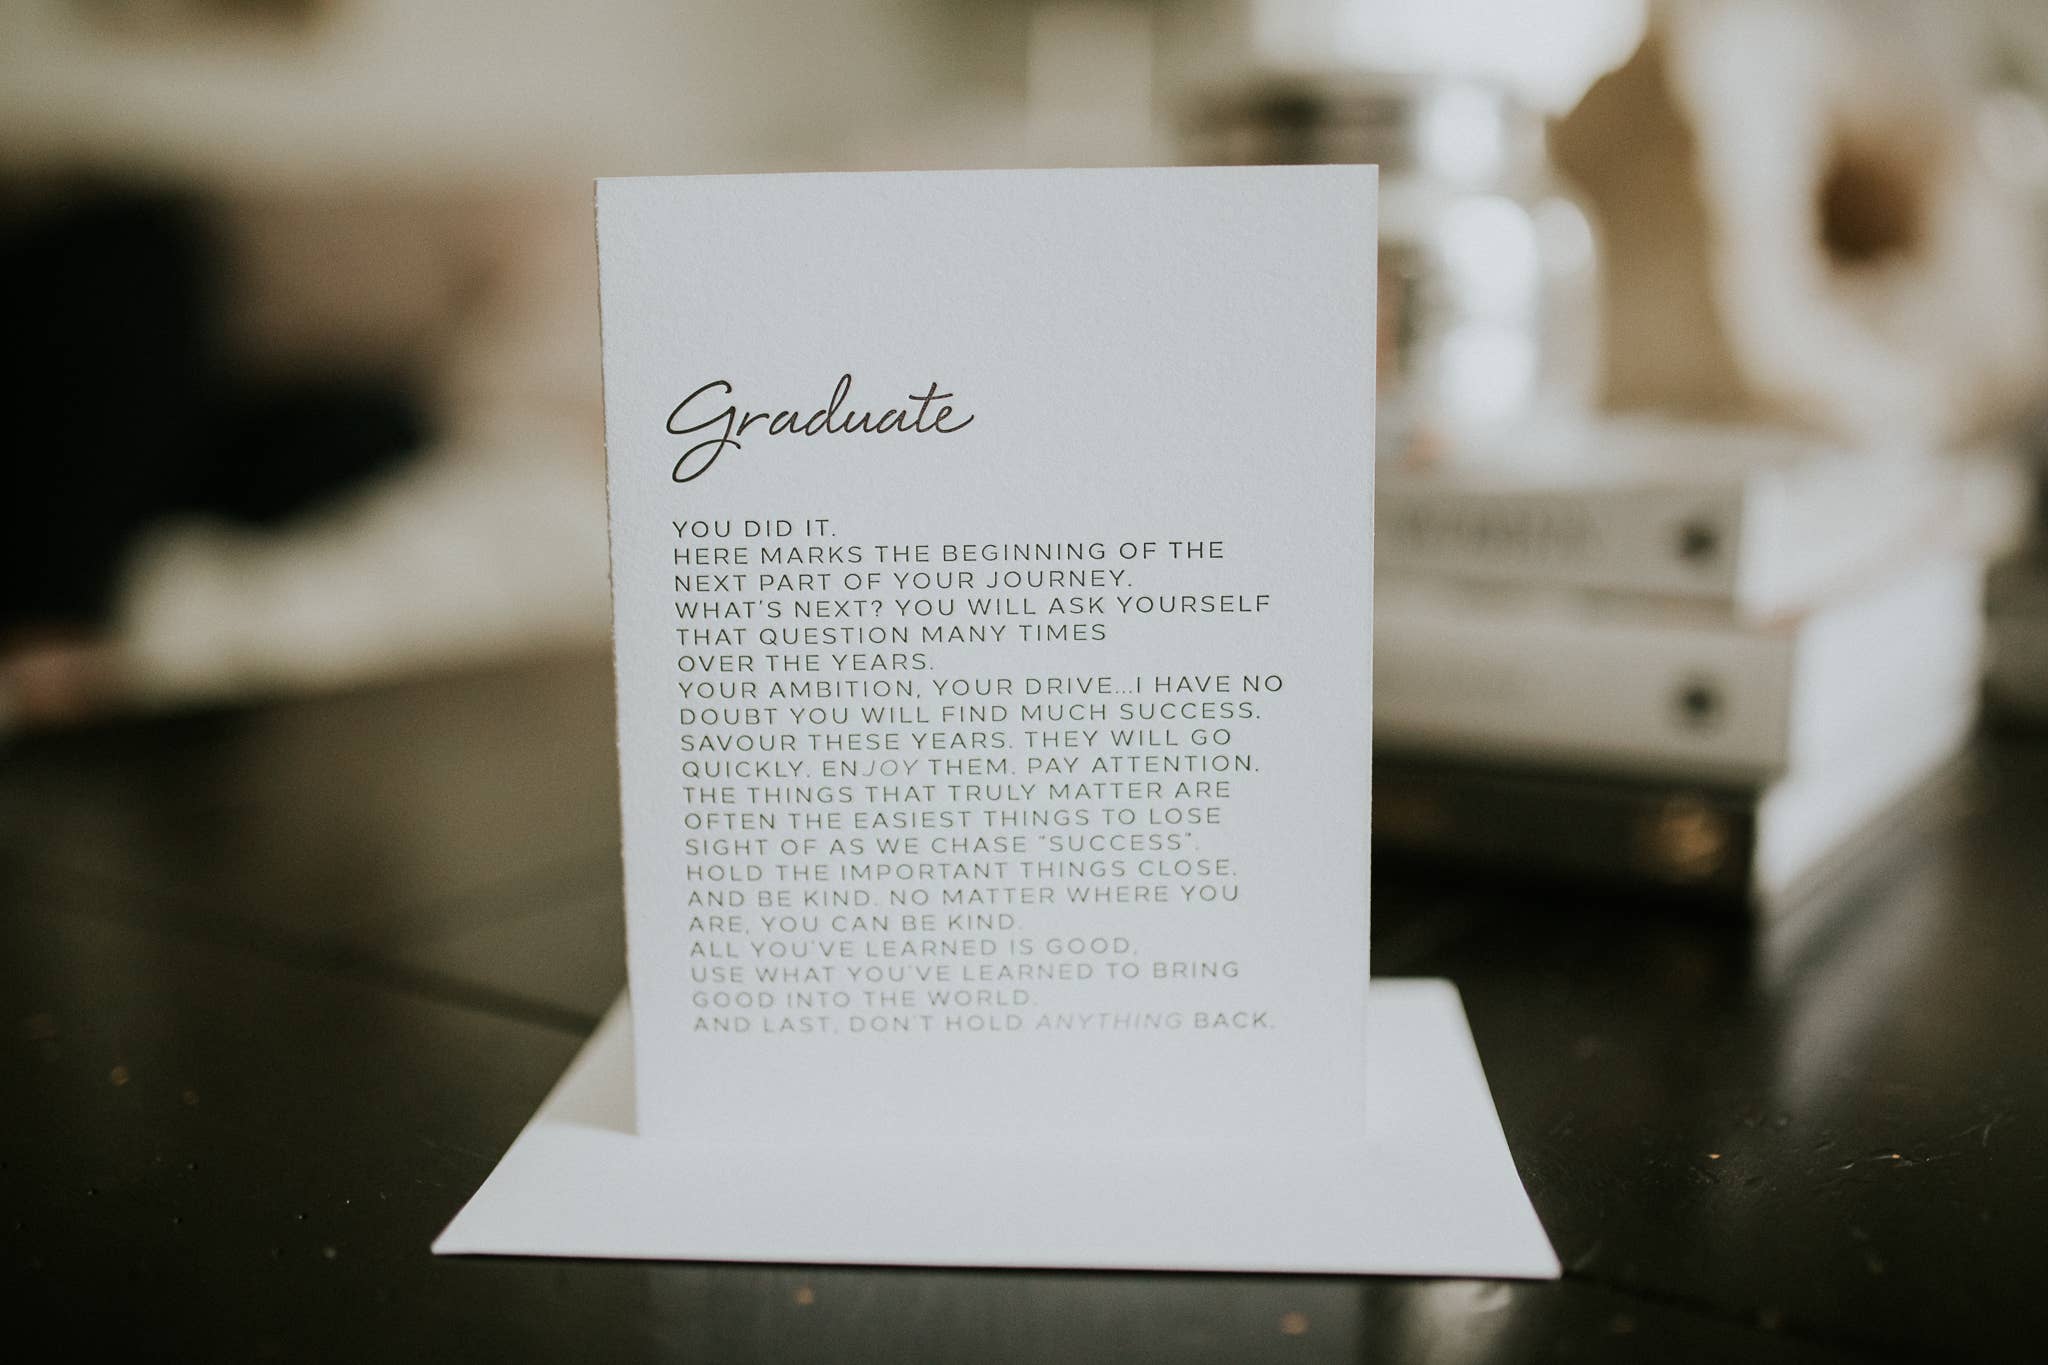 Graduate
YOU DID IT.
HERE MARKS THE BEGINNING OF THE
NEXT PART OF YOUR JOURNEY.
WHAT'S NEXT? YOU WILL ASK YOURSELF
THAT QUESTION MANY TIMES
OVER THE YEARS.
YOUR AMBITION, YOUR DRIVE...I HAVE NO
DOUBT YOU WILL FIND MUCH SUCCESS.
SAVOUR THESE YEARS. THEY WILL GO
QUICKLY. ENJOY THEM. PAY ATTENTION.
THE THINGS THAT TRULY MATTER ARE
OFTEN THE EASIEST THINGS TO LOSE
SIGHT OF AS WE CHASE "SUCCESS".
HOLD THE IMPORTANT THINGS CLOSE.
AND BE KIND. NO MATTER WHERE YOU
ARE, YOU CAN BE KIND.
ALL YOU'VE LEARNED IS GOOD,
USE WHAT YOU'VE LEARNED TO BRING
GOOD INTO THE WORLD.
AND LAST, DON'T HOLD ANYTHING BACK.